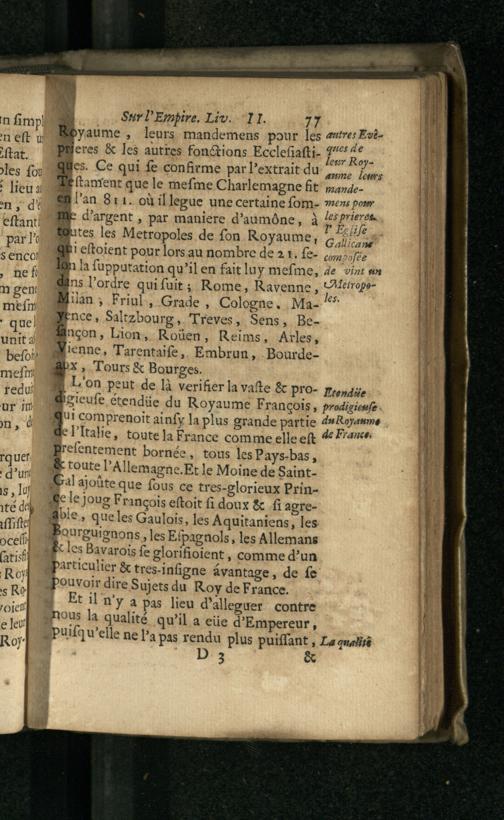 Sur l'Empire. Liv. II. 77
Royaume, leurs mandemens pour les
prieres & les autres fonctions Ecclesiasti-
ques. Ce qui se confirme par l'extrait du
Testament que le mesme Charlemagne fit
en l'an 811. où il legue une certaine som-
me d'argent, par maniere d'aumône, à
toutes les Metropoles de son Royaume,
qui estoient pour lors au nombre de 21. se-
lon la supputation qu'il en fait luy mesme,
dans l'ordre qui suit; Rome, Ravenne,
Milan, Friul, Grade, Cologne, Ma-
yence, Saltzbourg, Treves, Sens, Be-
sançon, Lion, Roüen, Reims, Arles,
Vienne, Tarentaise, Embrun, Bourde-
aux, Tours & Bourges.
L'on peut de là verifier la vaste & pro-
digieuse étendüe du Royaume François,
qui comprenoit ainsy la plus grande partie
de l'Italie, toute la France comme elle est
presentement bornée, tous les Pays-bas,
& toute l'Allemagne. Et le Moine de Saint-
Gal ajoûte que sous ce tres-glorieux Prin-
ce le joug François estoit si doux & si agre-
able, que les Gaulois, les Aquitaniens, les
Bourguignons, les Espagnols, les Allemans
& les Bavarois se glorifioient, comme d'un
particulier & tres-insigne ávantage, de se
pouvoir dire Sujets du Roy de France.
Et il n'y a pas lieu d'alleguer contre
nous la qualité qu'il a eüe d'Empereur,
puisqu'elle ne l'a pas rendu plus puissant,
D 3 &
autres Evê-
ques de
leur Roy-
aume leurs
mande-
mens pour
les prieres.
l'Eglise
Gallicane
composée
de vint un
Metropo-
les.
Etendüe
prodigieuse
du Royaume
de France.
La qualité